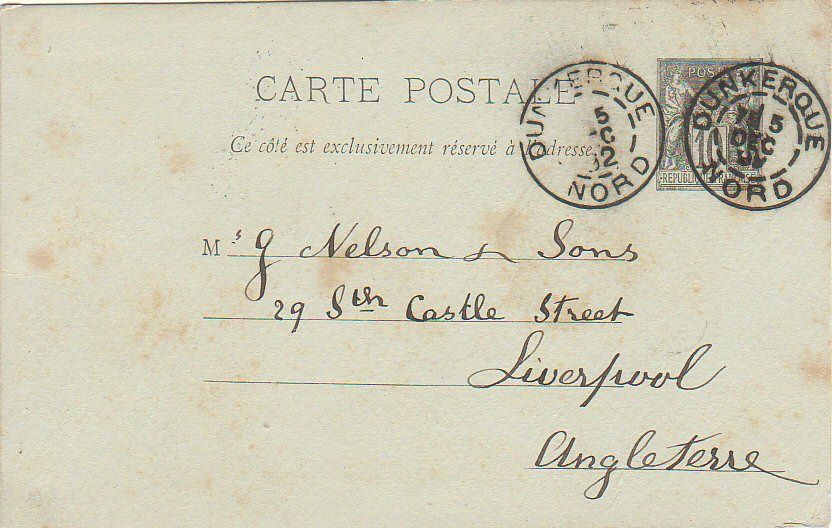 CARTE POSTALE
Ce côté est exclusivement réservé à l'adresse.
POSTES
10
REPUBLIQUE FRANCAISE
DUNKERQUE
5
NORD
DUNKERQUE
5
DEC
NORD
Ms G Nelson & Sons
29 Sth Castle Street
Liverpool
Angleterre